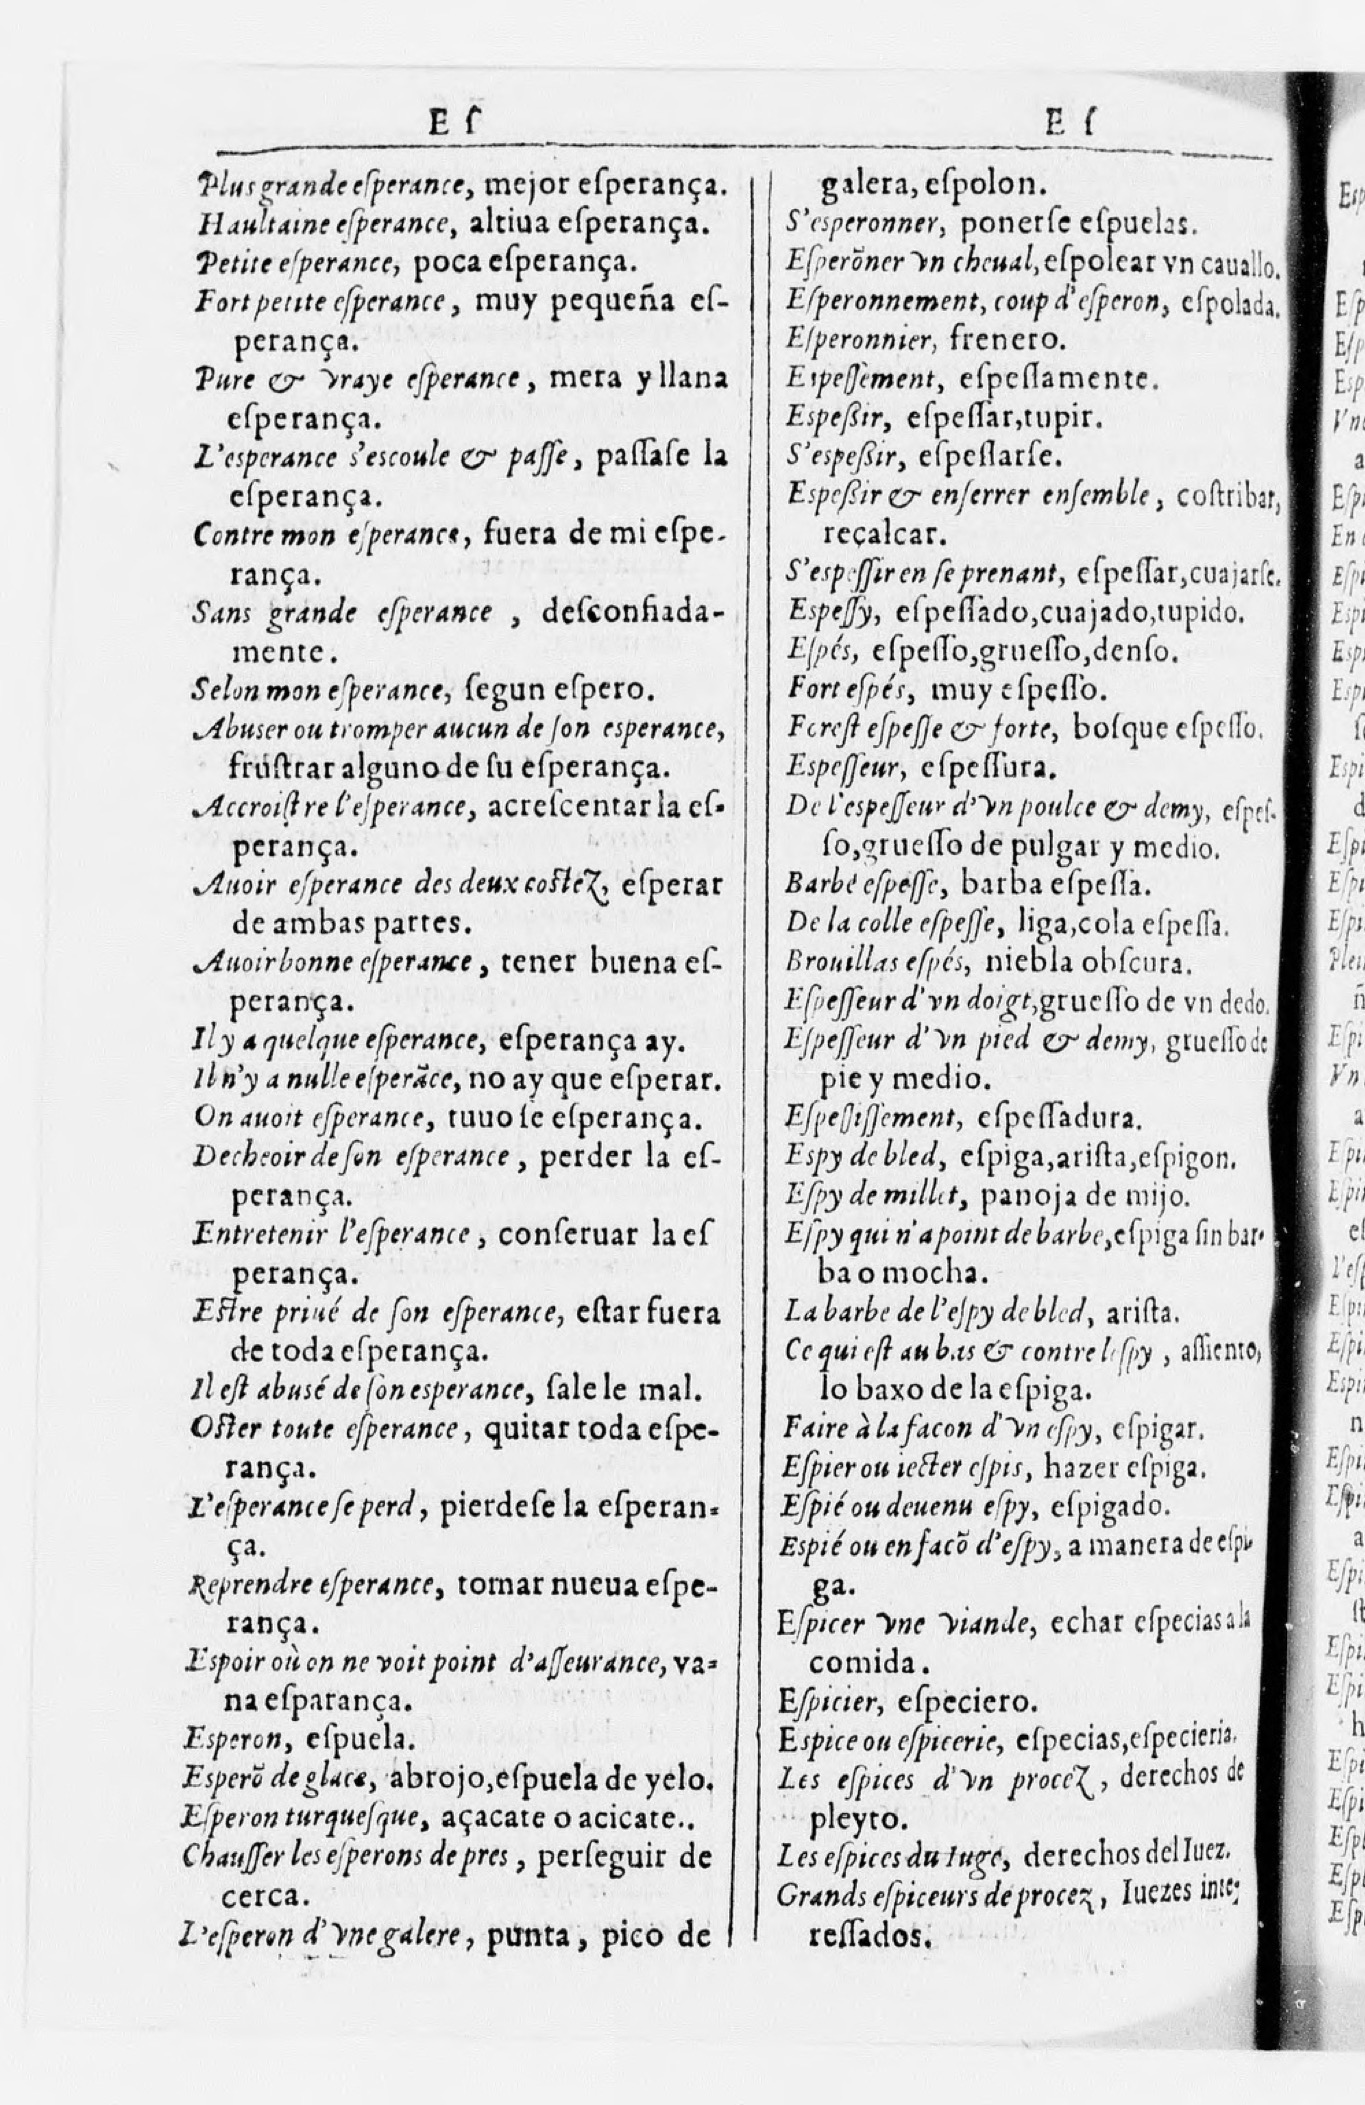 E ſ
Plus grande eſperance, mejor eſperança.
Haultaine eſperance, altiua eſperança.
Petite eſperance, poca eſperança.
Fort petite eſperance, muy pequeña eſ-
perança.
Pure & vraye eſperance, mera y llana
eſperança.
L'esperance s'escoule & paſſe, paſſaſe la
eſperança.
Contre mon eſperance, fuera de mi eſpe-
rança.
Sans grande eſperance, deſconfiada-
mente.
Selon mon eſperance, ſegun eſpero.
Abuser ou tromper aucun de ſon esperance,
fruſtrar alguno de ſu eſperança.
Accroiſtre l'eſperance, acreſcentar la eſ-
perança.
Auoir eſperance des deux coſtez, eſperar
de ambas partes.
Auoir bonne eſperance, tener buena eſ-
perança.
Il y a quelque eſperance, eſperança ay.
Il n'y a nulle eſperãce, no ay que eſperar.
On auoit eſperance, tuuo ſe eſperança.
Decheoir de ſon eſperance, perder la eſ-
perança.
Entretenir l'eſperance, conſeruar la eſ
perança.
Eſtre priué de ſon eſperance, eſtar fuera
de toda eſperança.
Il eſt abusé de ſon esperance, ſale le mal.
Oſter toute eſperance, quitar toda eſpe-
rança.
L'eſperance ſe perd, pierdeſe la eſperan-
ça.
Reprendre eſperance, tomar nueua eſpe-
rança.
Espoir où on ne voit point d'aſſeurance, va-
na eſparança.
Esperon, eſpuela.
Esperõ de glace, abrojo, eſpuela de yelo.
Eſperon turqueſque, açacate o acicate..
Chauſſer les eſperons de pres, perſeguir de
cerca.
L'eſperon d'vne galere, punta, pico de
E ſ
galera, eſpolon.
S'esperonner, ponerſe eſpuelas.
Eſperõner vn cheual, eſpolear vn cauallo.
Eſperonnement, coup d'eſperon, eſpolada.
Eſperonnier, frenero.
Eſpeſſement, eſpeſſamente.
Espeßir, eſpeſſar, tupir.
S'espeßir, eſpeſſarſe.
Espeßir & enſerrer enſemble, coſtribar,
reçalcar.
S'espeſſir en ſe prenant, eſpeſſar, cuajarſe.
Espeſſy, eſpeſſado, cuajado, tupido.
Eſpés, eſpeſſo, grueſſo, denſo.
Fort eſpés, muy eſpeſſo.
Foreſt eſpeſſe & forte, boſque eſpeſſo.
Espeſſeur, eſpeſſura.
De l'espeſſeur d'vn poulce & demy, eſpeſ-
ſo, grueſſo de pulgar y medio.
Barbe eſpeſſe, barba eſpeſſa.
De la colle eſpeſſe, liga, cola eſpeſſa.
Brouillas eſpés, niebla obſcura.
Eſpeſſeur d'vn doigt, grueſſo de vn dedo.
Eſpeſſeur d'vn pied & demy, grueſſo de
pie y medio.
Eſpeſſiſſement, eſpeſſadura.
Espy de bled, eſpiga, ariſta, eſpigon.
Eſpy de millet, panoja de mijo.
Eſpy qui n'a point de barbe, eſpiga ſin bar-
ba o mocha.
La barbe de l'eſpy de bled, ariſta.
Ce qui eſt au bas & contre leſpy, aſſiento,
lo baxo de la eſpiga.
Faire à la facon d'vn eſpy, eſpigar.
Eſpier ou iecter eſpis, hazer eſpiga.
Eſpié ou deuenu eſpy, eſpigado.
Espié ou en facõ d'eſpy, a manera de eſpi-
ga.
Eſpicer vne viande, echar eſpecias a la
comida.
Eſpicier, eſpeciero.
Espice ou eſpicerie, eſpecias, eſpecieria.
Les eſpices d'vn procez, derechos de
pleyto.
Les eſpices du Iuge, derechos del Iuez.
Grands eſpiceurs de procez, Iuezes inte-
reſſados.